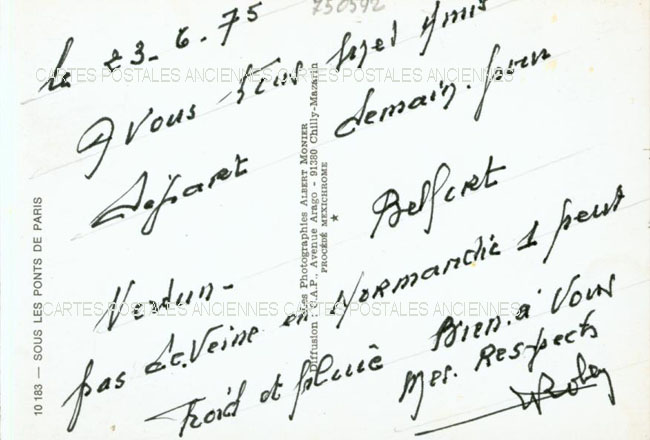 750592
le 23-6.75
A vous tous mes Amis
Départ demain. pour
Belfort
Verdun-
pas de. Veine en Normandie 1 peut
Froid et pluie Bien. à Vous
Mes. Respects
CARTES POSTALES ANCIENNES CARTES POSTALES ANCIENNES
CARTES POSTALES ANCIENNES CARTES POSTALES ANCIENNES
Les Photographies ALBERT MONIER
Diffusion : C.A.P., Avenue Arago - 91380 Chilly-Mazarin
PROCÉDÉ MEXICHROME
10 183 — SOUS LES PONTS DE PARIS